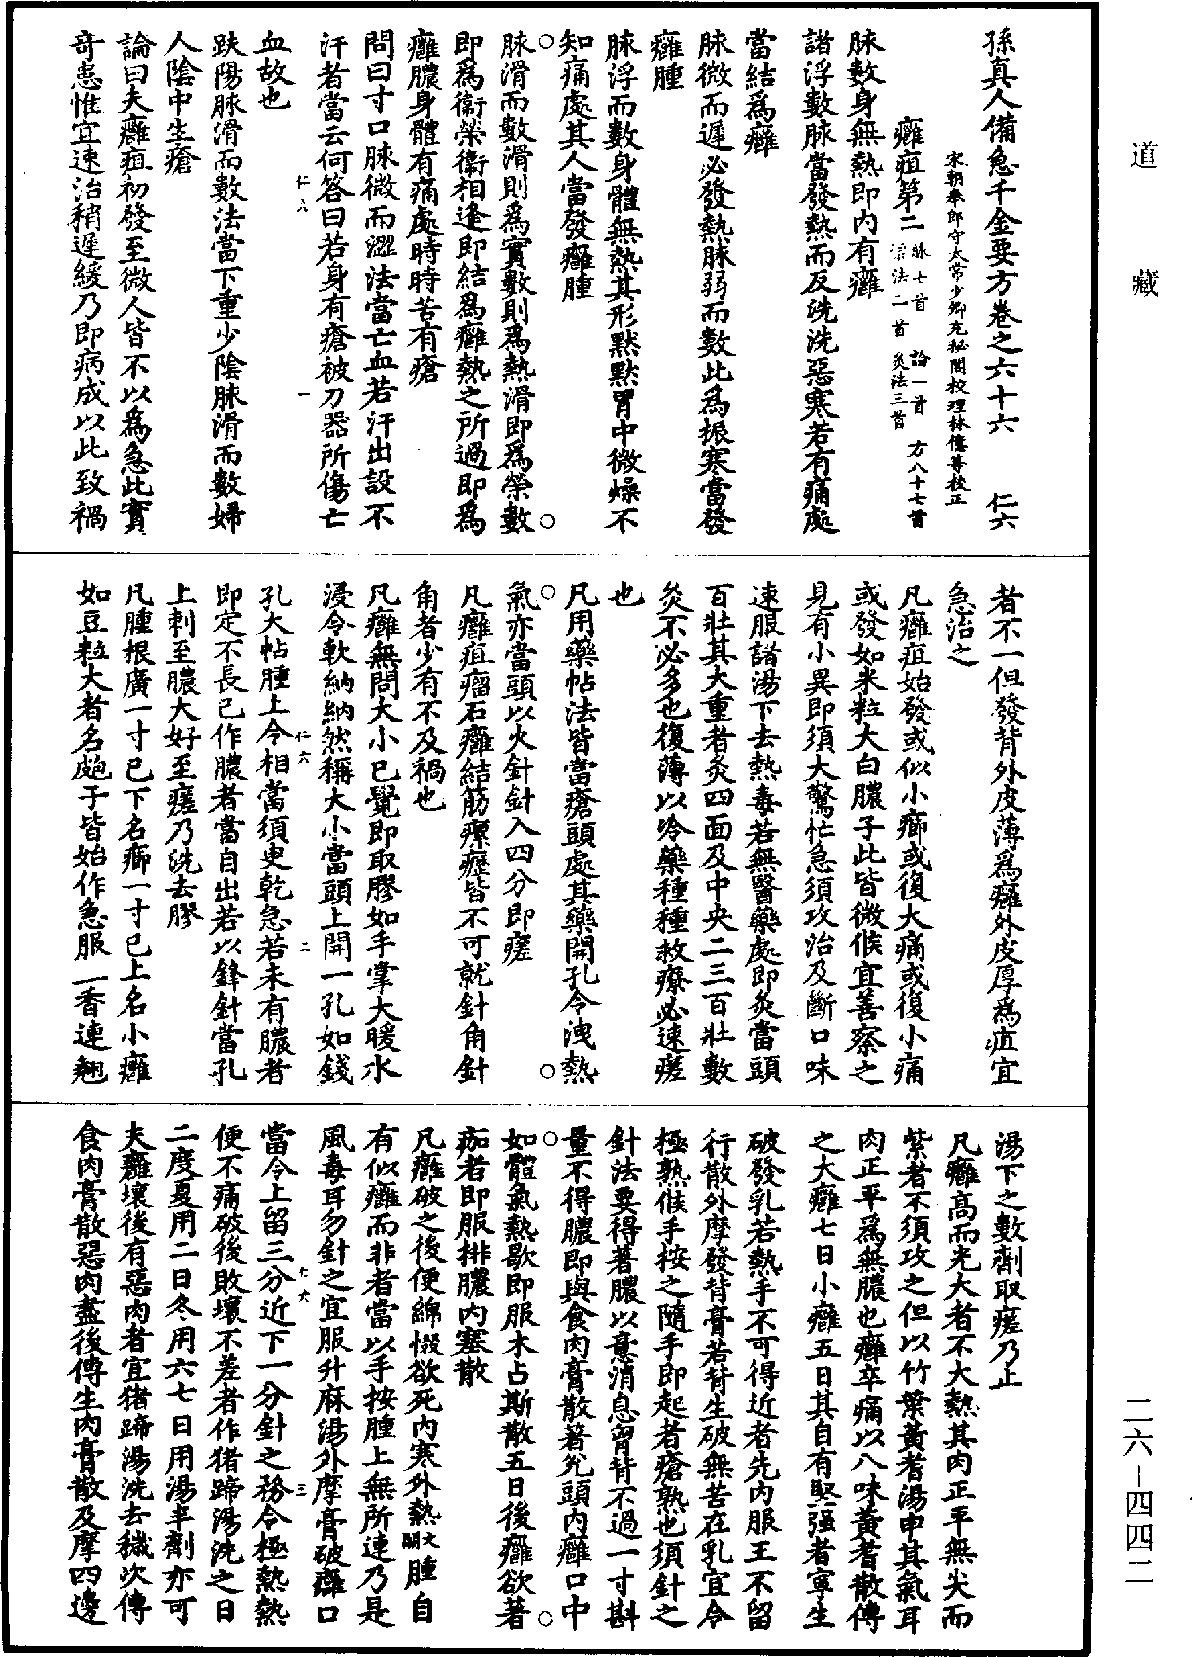 道藏
孫真人備急千金要方卷之六十六 仁六
宋朝奉郎守太常少卿充秘閣校理林億等校正
癰疽第二 脉七首 論一首 方八十七首
禁法一首 灸法三首
脉數身無熱即內有癰
諸浮數脉當發熱而反洗洗惡寒若有痛處
當結為癰
脉微而遲必發熱脉弱而數此為振寒當發
癰腫
脉浮而數身體無熱其形默默胷中微燥不
知痛處其人當發癰腫
脉滑而數滑則為實數則為熱滑即為榮數
即為衞榮衞相逢即結為癰熱之所過即為
癰膿身體有痛處時時苦有瘡
問曰寸口脉微而澀法當亡血若汗出設不
汗者當云何荅曰若身有瘡被刀器所傷亡
仁六 一
血故也
趺陽脉滑而數法當下重少陰脉滑而數婦
人陰中生瘡
論曰夫癰疽初發至微人皆不以為急此實
奇患惟宜速治稍遲緩乃即病成以此致禍
者不一但發背外皮薄為癰外皮厚為疽宜
急治之
凡癰疽始發或似小癤或復大痛或復小痛
或發如米粒大白膿子此皆微候宜善察之
見有小異即須大驚忙急須攻治及斷口味
速服諸湯下去熱毒若無醫藥處即灸當頭
百壯其大重者灸四面及中央二三百壯數
灸不必多也復薄以冷藥種種救療必速瘥
也
凡用藥帖法皆當瘡頭處其藥開孔令洩熱
氣亦當頭以火針針入四分即瘥
凡癰疽瘤石癰結筋瘰癧皆不可就針角針
角者少有不及禍也
凡癰無問大小已覺即取膠如手掌大暖水
浸令軟納納然稱大小當頭上開一孔如錢
仁六 二
孔大帖腫上令相當須臾乾急若未有膿者
即定不長已作膿者當自出若以鋒針當孔
上刺至膿大好至瘥乃洗去膠
凡腫根廣一寸已下名癤一寸已上名小癰
如豆粒大者名皰子皆始作急服一香連翹
湯下之數劑取瘥乃止
凡癰高而光大者不大熱其肉正平無尖而
紫者不須攻之但以竹葉黃耆湯申其氣耳
肉正平為無膿也癰卒痛以八味黃耆散傅
之大癰七日小癰五日其自有堅強者寧生
破發乳若熱手不可得近者先內服王不留
行散外摩發背膏若背生破無苦在乳宜令
極熟候手按之隨手即起者瘡熟也須針之
針法要得著膿以意消息胷背不過一寸斟
量不得膿即與食肉膏散著兊頭內癰口中
如體氣熱歇即服木占斯散五日後癰欲著
痂者即服排膿內塞散
凡癰破之後便綿惙欲死內寒外熱文闕腫自
有似癰而非者當以手按腫上無所連乃是
風毒耳勿針之宜服升麻湯外摩膏破癰口
仁六 三
當令上留三分近下一分針之務令極熱熱
便不痛破後敗壞不差者作猪蹄湯洗之日
二度夏用二日冬用六七日用湯半劑亦可
夫癰壞後有惡肉者宜猪蹄湯洗去穢次傅
食肉膏散惡肉盡後傅生肉膏散及摩四邊
二六－四四二